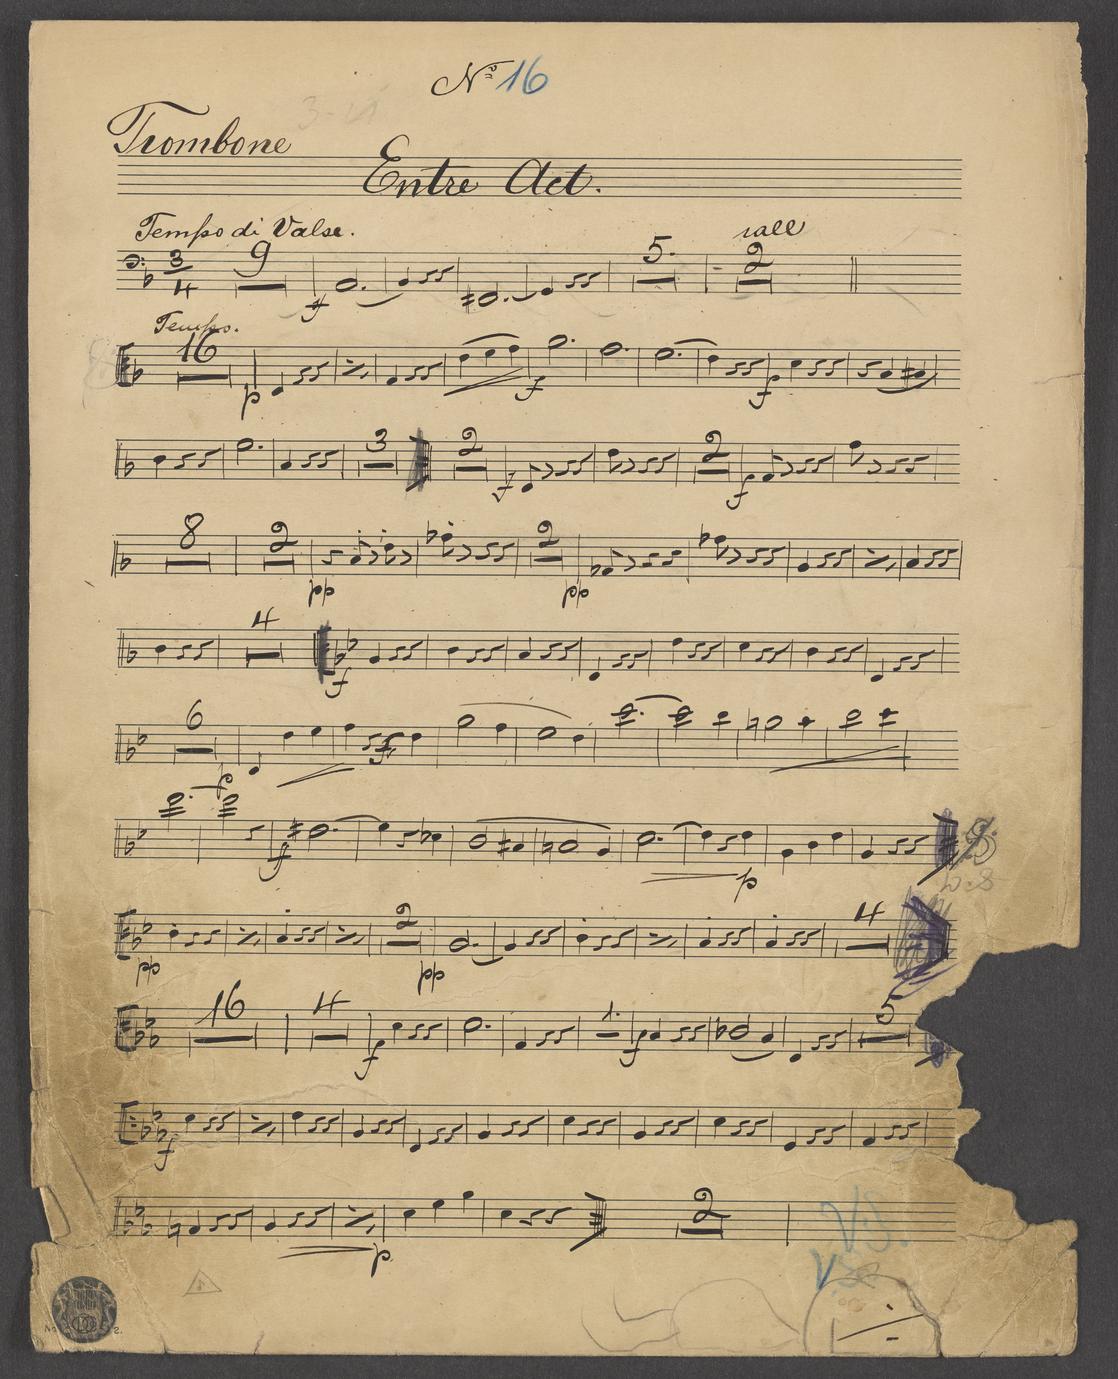 Nº 16
Trombone
Entre Act.
Tempo di Valse.
rall
3 4 9 5. 2
f
Tempo.
16
p f f
3 2 2
f f
8 2 2
pp pp
4
f
6
p f
f p
2 4
pp pp
16 4 1. 5
f f
f
2
p
V.S.
V.S.